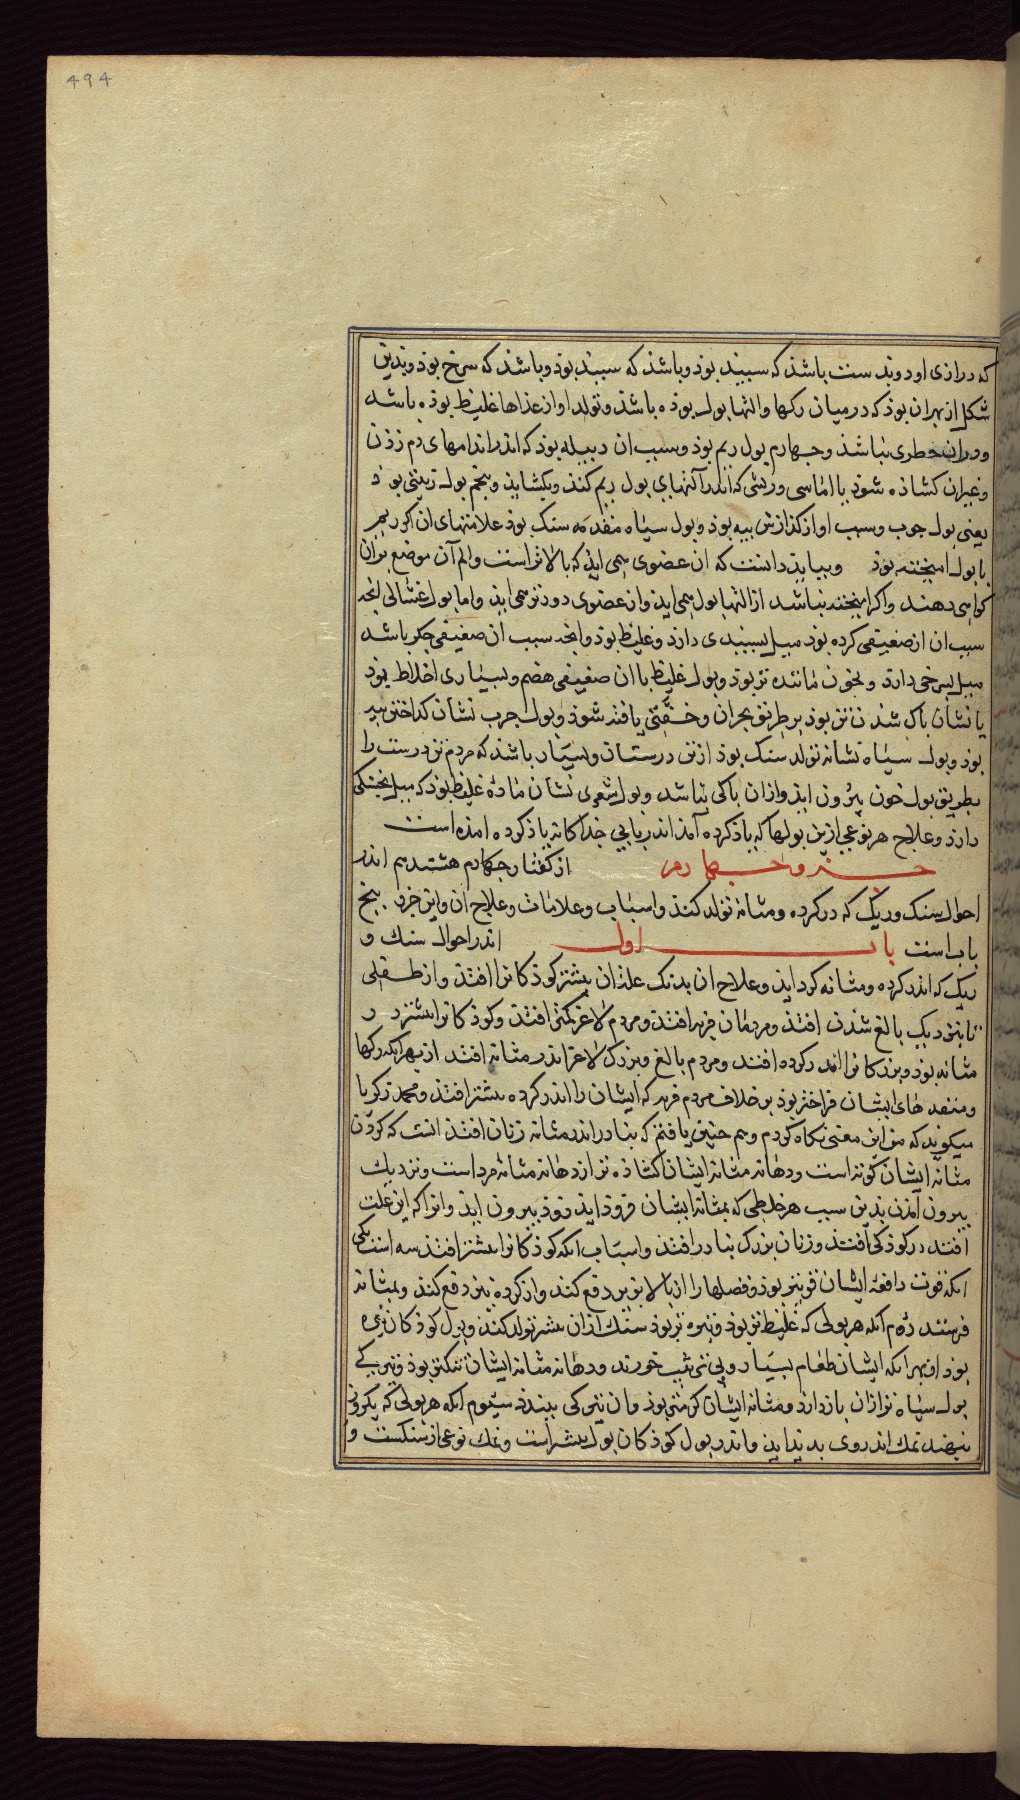 494
که درازی او دو بدست باشد که سپید بوذ و باشذ که سپید بوذ و باشذ که سرخ بوذ و بدین
شکل از بهر ان بوذ که در میان رکها و التها بول بوذه باشذ و تولد او از غذاها غلیظ بوذه باشد
و در ان خطری نباشذ و چهارم بول ریم بوذ و سبب ان دبیله بوذ که اندر اندامهای دم زدن
و غیر ان کشاذه شوذ یا اماسی و ریشی که اندر آلتهای بول ریم کنذ و بکشاید و پنجم بول زیتی بوذ
یعنی بول چرب و سبب او از کذازش پیه بوذ و بول سیاه مقدمه سنک بوذ علامتهای ان اکر ریم
با بول امیخته بوذ و بباید دانست که ان عضوی همی ایذ که بالاتر است و الم آن موضع بر ان
کواهی دهند و اکر امیخته نباشد از التها بول همی ایذ و از عضوی دورتر همی ایذ و اما بول غسالی انچه
سبب ان از ضعیفی کرده بوذ میل بسپیدی دارذ و غلیظ بوذ و انچه سبب ان ضعیفی جکر باشد
میل بسرخی دارذ و بخون ماننده تر بوذ و بول غلیظ با ان ضعیفی هضم و بسیاری اخلاط بوذ
یا نشان پاک شدن تن بوذ بر طریق بحران و خفتی یافته شوذ و بول چرب نشان کداختن پیه
بوذ و بول سیاه نشانه تولد سنک بوذ ازین درستان و بسیار باشذ که مردم تن درست را
بطریق بول خون بیرون ایذ و ازان باکی نباشد و بول شعری نشان ماده غلیظ بوذ که میل بخشکی
دارذ و علاج هر نوعی ازین بولها که یاذ کرده آمذ اندر بابی جذاکانه یاذ کرده امذه است
جزو چهارم از کفتار چکارم هشتدهم اندر
احوال سنک و ریک که در کرده و مثانه تولد کنذ و اسباب و علامات و علاج ان و این جزو پنج
باب است باب اول اندر احوال سنک و
ریک که اندر کرده و مثانه کرد ایذ و علاج ان بدنک علت ان بیشتر کوذکانرا افتذ و از طفلی
تا بنزدیک بالغ شدن افتذ و مردمان فربه افتذ و مردم لاغر کمتر افتذ و کوذکانرا بیشتر در
مثانه بوذ و بزرکانرا اندر کرده افتد و مردم بالغ و بزرک لاغر اندر مثانه افتد از بهر انکه رکها
و منفذهای ایشان فراختر بوذ بر خلاف مردم فربه که ایشان را اندر کرده بیشتر افتذ و محمد زکریا
میکوید که من این معنی نکاه کردم و هم چنین یافتم که بنادر اندر مثانه زنان افتذ انست که کردن
مثانه ایشان کوته است و دهانه مثانه ایشان کشاذه تر از دهانه مثانه مرد است و نزدیک
بیرون آمذن بذین سبب هر خلطی که بمثانه ایشان فروذ ایذ زوذ بیرون ایذ و انرا که این علت
افتد در کوذکی افتذ و زنان بزرک بنادر افتذ و اسباب انکه کوذکانرا بیشتر افتذ سه است یکی
انکه قوت دافعه ایشان قویتر بوذ و فضلها را از بالا بزیر دفع کند و از کرده نیز دفع کنذ و بمثانه
فرستد دوم انکه هر بولی که غلیظ تر بوذ و تیره تر بوذ سنک ازان بیشتر تولد کنذ و بول کوذکان تیره
بوذ از بهر انکه ایشان طعام بسیار و بی ترتیب خورند و دهانه مثانه ایشان تنکتر بوذ و تیرکی
بول سیاه تر ازان بازدارذ و مثانه ایشان کرمتر بوذ و ان تیرکی ببندذ سیوم انکه هر بولی که یکروز
بنهند نمک اندر وی بدید ایذ و اندر بول کوذکان بول بیشتر است و نمک نوعی از سنکست و